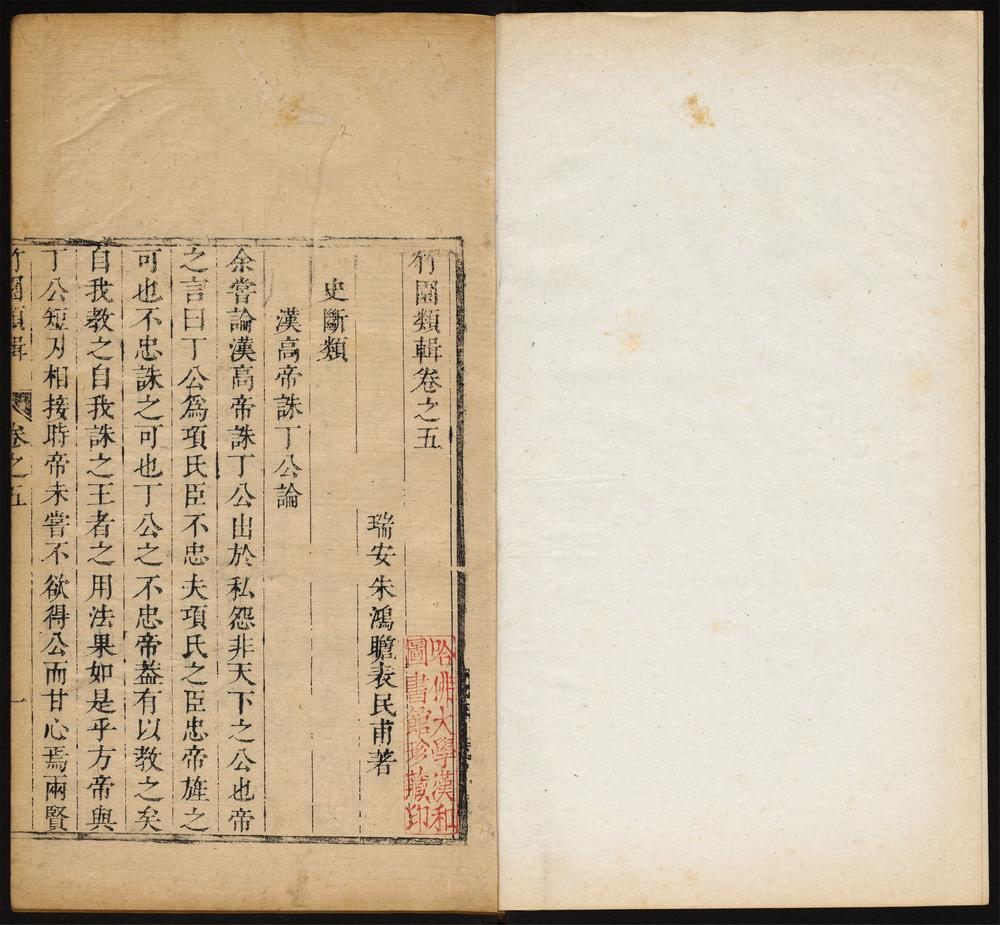 竹園類輯卷之五
瑞安朱鴻瞻表民甫著
史斷類
漢高帝誅丁公論
余嘗論漢高帝誅丁公出於私怨非天下之公也帝
之言曰丁公爲項氏臣不忠夫項氏之臣忠帝旌之
可也不忠誅之可也丁公之不忠帝葢有以教之矣
自我教之自我誅之王者之用法果如是乎方帝與
丁公短刃相接時帝未嘗不欲得公而甘心焉兩賢
竹園類輯 卷之五 一
哈佛大學漢和
圖書館珍藏印